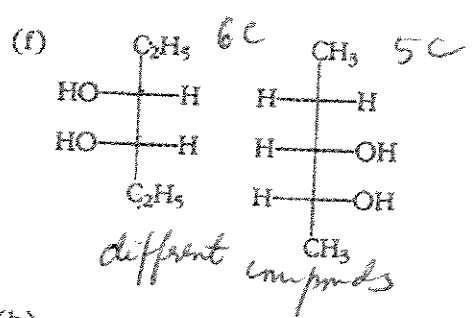 (f) C₂H₅ 6C CH₃ 5C
HO H H H
HO H H OH
C₂H₅ H OH
different CH₃
compnds